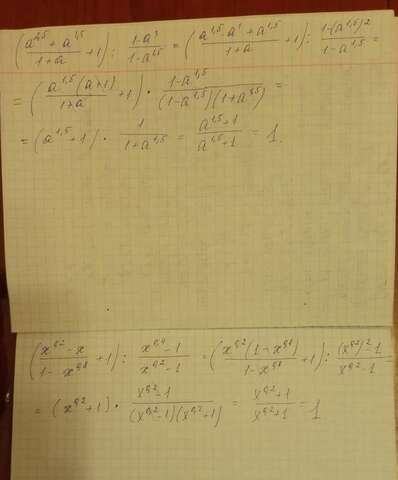 (a^2,5 + a^1,5 / 1+a + 1) : 1-a^3 / 1-a^1,5 = (a^1,5 · a^1 + a^1,5 / 1+a + 1) : 1-(a^1,5)^2 / 1-a^1,5 =
= (a^1,5 (a+1) / 1+a + 1) · 1-a^1,5 / (1-a^1,5)(1+a^1,5) =
= (a^1,5 + 1) · 1 / 1+a^1,5 = a^1,5+1 / a^1,5+1 = 1.
(x^0,2 - x / 1-x^0,8 + 1) : x^0,4 - 1 / x^0,2 - 1 = (x^0,2 (1-x^0,8) / 1-x^0,8 + 1) : (x^0,2)^2 - 1 / x^0,2 - 1 =
= (x^0,2 + 1) · x^0,2 - 1 / (x^0,2 - 1)(x^0,2 + 1) = x^0,2 + 1 / x^0,2 + 1 = 1